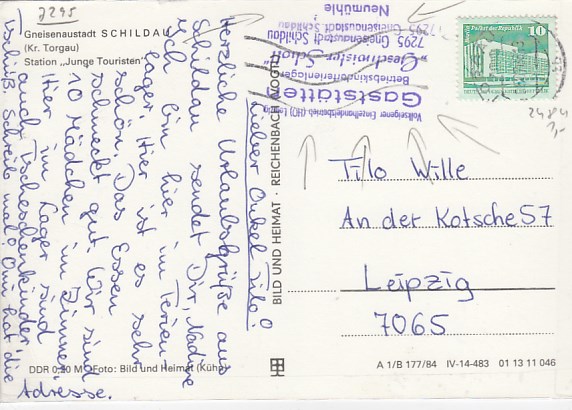 7295
Gneisenaustadt SCHILDAU
(Kr. Torgau)
Station „Junge Touristen"
Lieber Onkel Tilo!
Herzliche Urlaubsgrüße aus
Schildau sendet Dir, Nadine
Ich bin hier im Ferien-
lager. Hier ist es sehr
schön. Das Essen
schmeckt gut. Wir sind
10 Mädchen im Zimmer.
Hier im Lager sind
auch Tschechenkinder
Tschüß. Schreib mal! Omi hat die
Adresse.
BILD UND HEIMAT · REICHENBACH (VOGTL)
Volkseigener Einzelhandelsbetrieb (HO)
Gaststätte
Betriebskinderferienlager
„Geschwister-Scholl"
7295 Gneisenaustadt Schildau
7295 Gneisenaustadt Schildau
Neumühle
Palast der Republik
DDR
10
2484
1,-
Tilo Wille
An der Kotsche 57
Leipzig
7065
DDR 0,20 M Foto: Bild und Heimat (Kühn)
A 1/B 177/84 IV-14-483 01 13 11 046